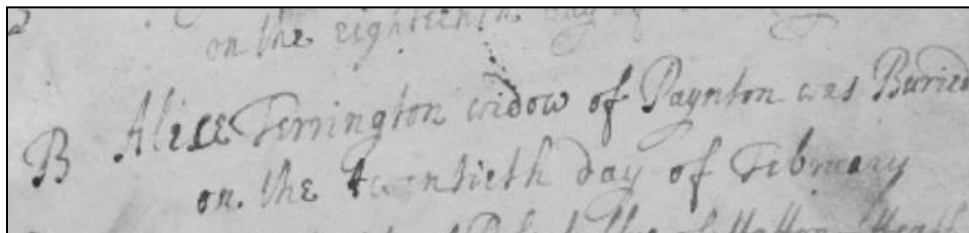 on the eighteenth day of
B Alice Ferrington widow of Paynton was Buried
on the twentieth day of February
of Hatton Heath